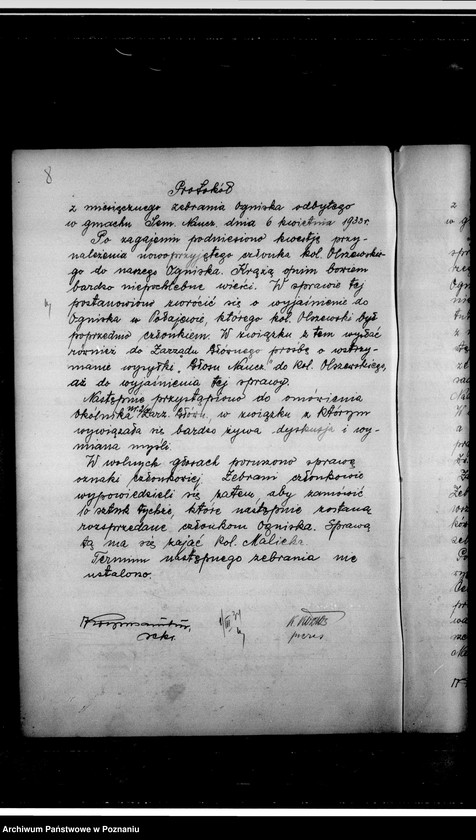 8
Protokół
z miesięcznego zebrania Ogniska odbytego
w gmachu Sem. Naucz. dnia 6 kwietnia 1933 r.
Po zagajeniu podniesiono kwestję przy-
należenia nowoprzyjętego członka kol. Olszewskie-
go do naszego Ogniska. Krążą o nim bowiem
bardzo niepochlebne wieści. W sprawie tej
postanowiono zwrócić się o wyjaśnienie do
Ogniska w , którego kol. Olszewski był
poprzednio członkiem. W związku z tem wysłać
również do Zarządu Głównego prośbę o wstrzy-
manie wysyłki „Głosu Naucz." do kol. Olszewskiego,
aż do wyjaśnienia tej sprawy.
Następnie przystąpiono do omówienia
okólnika Zarz. Główn. w związku z którym
wywiązała się bardzo żywa dyskusja i wy-
miana myśli.
W wolnych głosach poruszono sprawę
oznaki członkowskiej. Zebrani członkowie
wypowiedzieli się zatem, aby zamówić
10 sztuk tychże, które następnie zostaną
rozsprzedane członkom Ogniska. Sprawą
tą ma się zająć kol. Malicka.
Terminu następnego zebrania nie
ustalono.
sekr.
prezes
Archiwum Państwowe w Poznaniu